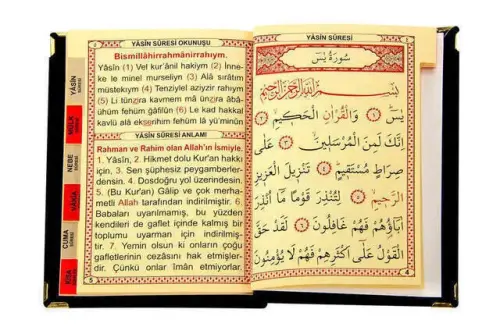 YÂSÎN SÛRESİ OKUNUŞU
Bismillâhirrahmânirrahıym.
Yâsîn (1) Vel kur'ânil hakiym (2) İnne-
ke le minel murseliyn (3) Alâ sırâtım
müstekıym (4) Tenziylel aziyzir rahıym
(5) Li tünzira kavmem mâ ünzira âbâ-
ühüm fehüm ğâfilûn (6) Le kad hakkal
kavlü alâ ekserihim fehüm lâ yü'minûn
YÂSÎN SÛRESİ ANLAMI
Rahman ve Rahim olan Allah'ın İsmiyle.
1. Yâsîn, 2. Hikmet dolu Kur'an hakkı
için, 3. Sen şüphesiz peygamberler-
densin. 4. Dosdoğru yol üzerindesin.
5. (Bu Kur'an) Gâlip ve çok merha-
metli Allah tarafından indirilmiştir. 6.
Babaları uyarılmamış, bu yüzden
kendileri de gaflet içinde kalmış bir
toplumu uyarman için indirilmiş-
tir. 7. Yemin olsun ki onların çoğu
gafletlerinin cezasını hak etmişler-
dir. Çünkü onlar îman etmiyorlar.
5
YÂSÎN
SÛRESİ
MÜLK
SÛRESİ
NEBE
SÛRESİ
VAKIA
SÛRESİ
CUMA
SÛRESİ
KISA
YÂSÎN SÛRESİ
سُورَةُ يٰسٓ
بِسْمِ اللّٰهِ الرَّحْمٰنِ الرَّحِيمِ
يٰسٓ ﴿١﴾ وَالْقُرْاٰنِ الْحَكِيمِ ﴿٢﴾
اِنَّكَ لَمِنَ الْمُرْسَلِينَ ﴿٣﴾ عَلٰى
صِرَاطٍ مُسْتَقِيمٍ ﴿٤﴾ تَنْزِيلَ الْعَزِيزِ
الرَّحِيمِ ﴿٥﴾ لِتُنْذِرَ قَوْمًا مَٓا اُنْذِرَ
اٰبَٓاؤُ۬هُمْ فَهُمْ غَافِلُونَ ﴿٦﴾ لَقَدْ حَقَّ
الْقَوْلُ عَلٰٓى اَكْثَرِهِمْ فَهُمْ لَا يُؤْمِنُونَ
4